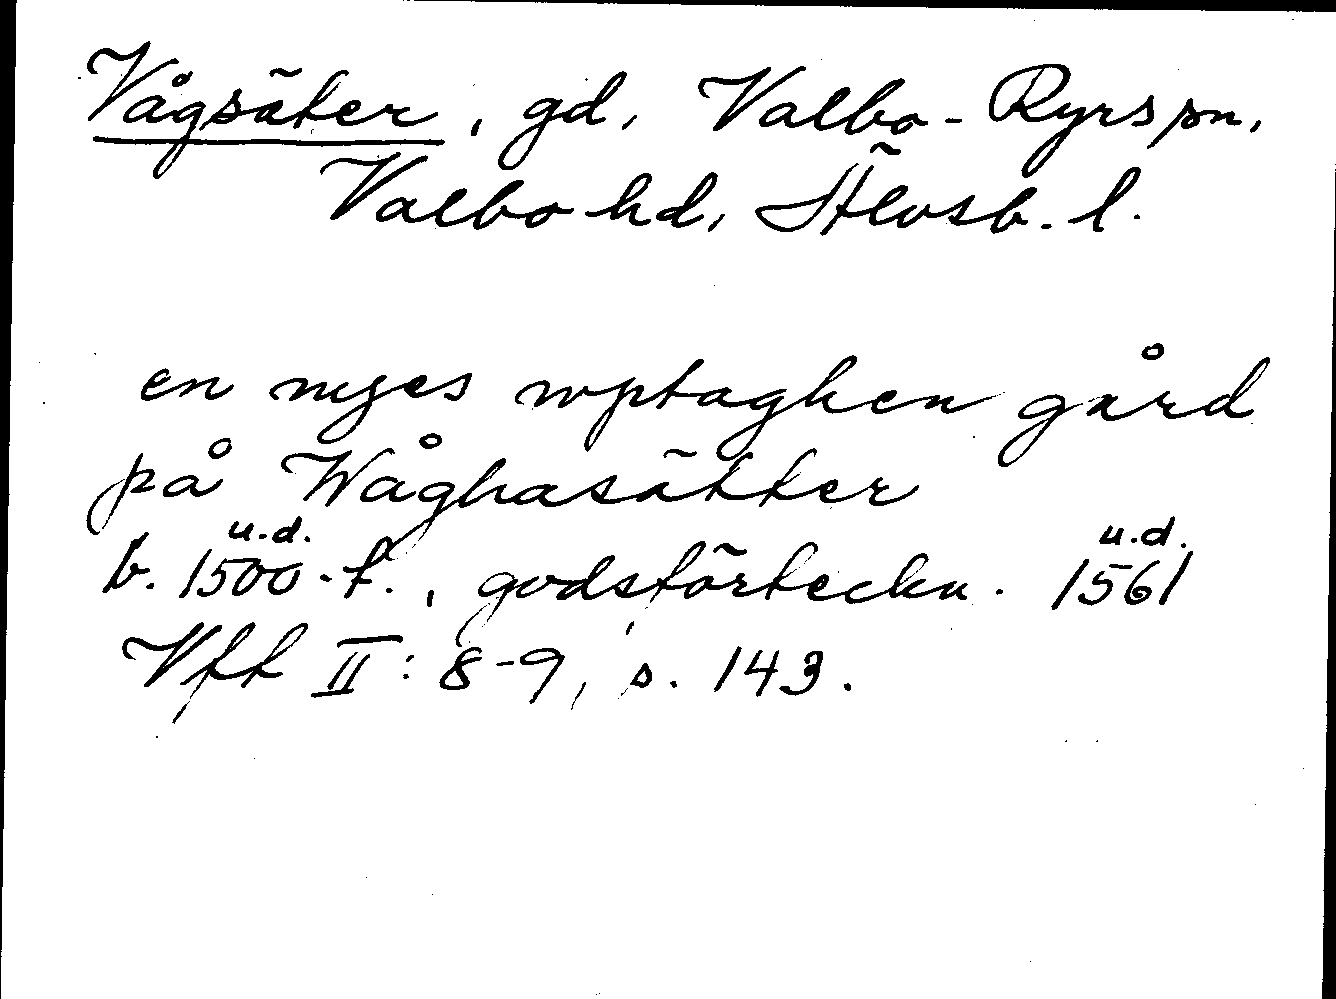 Vågsäter, gd, Valbo-Ryrs sn,
Valbo hd, Älvsb. l.
en nyes wptaghen gård
på Wåghasätter
u.d. u.d.
b. 1500-t., godsförteckn. 1561
Vft II: 8-9, s. 143.